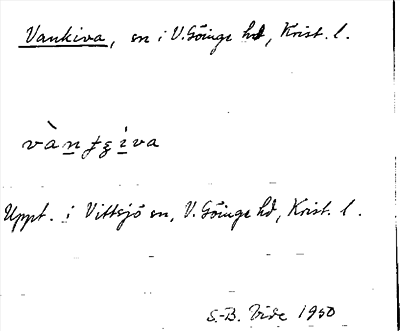 Vankiva, sn i V. Göinge hd, Krist. l.
vànʄʒiva
Uppt. i Vittsjö sn, V. Göinge hd, Krist. l.
S.-B. Vide 1950